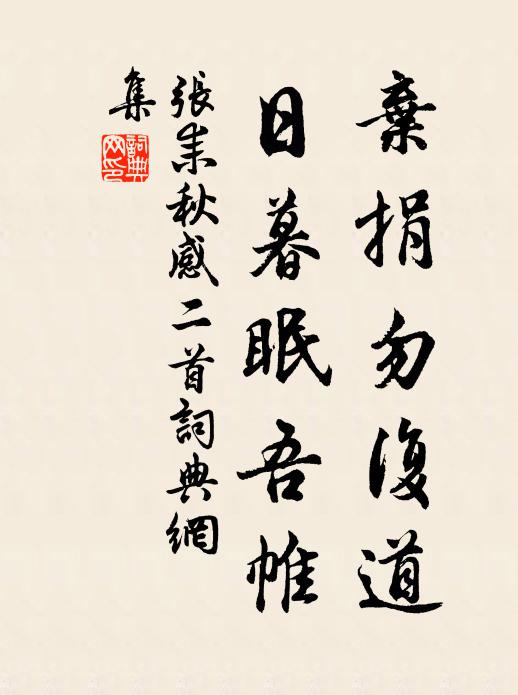 棄捐勿復道
日暮眠吾帷
張耒秋感二首詞典網
集
詞典
网印